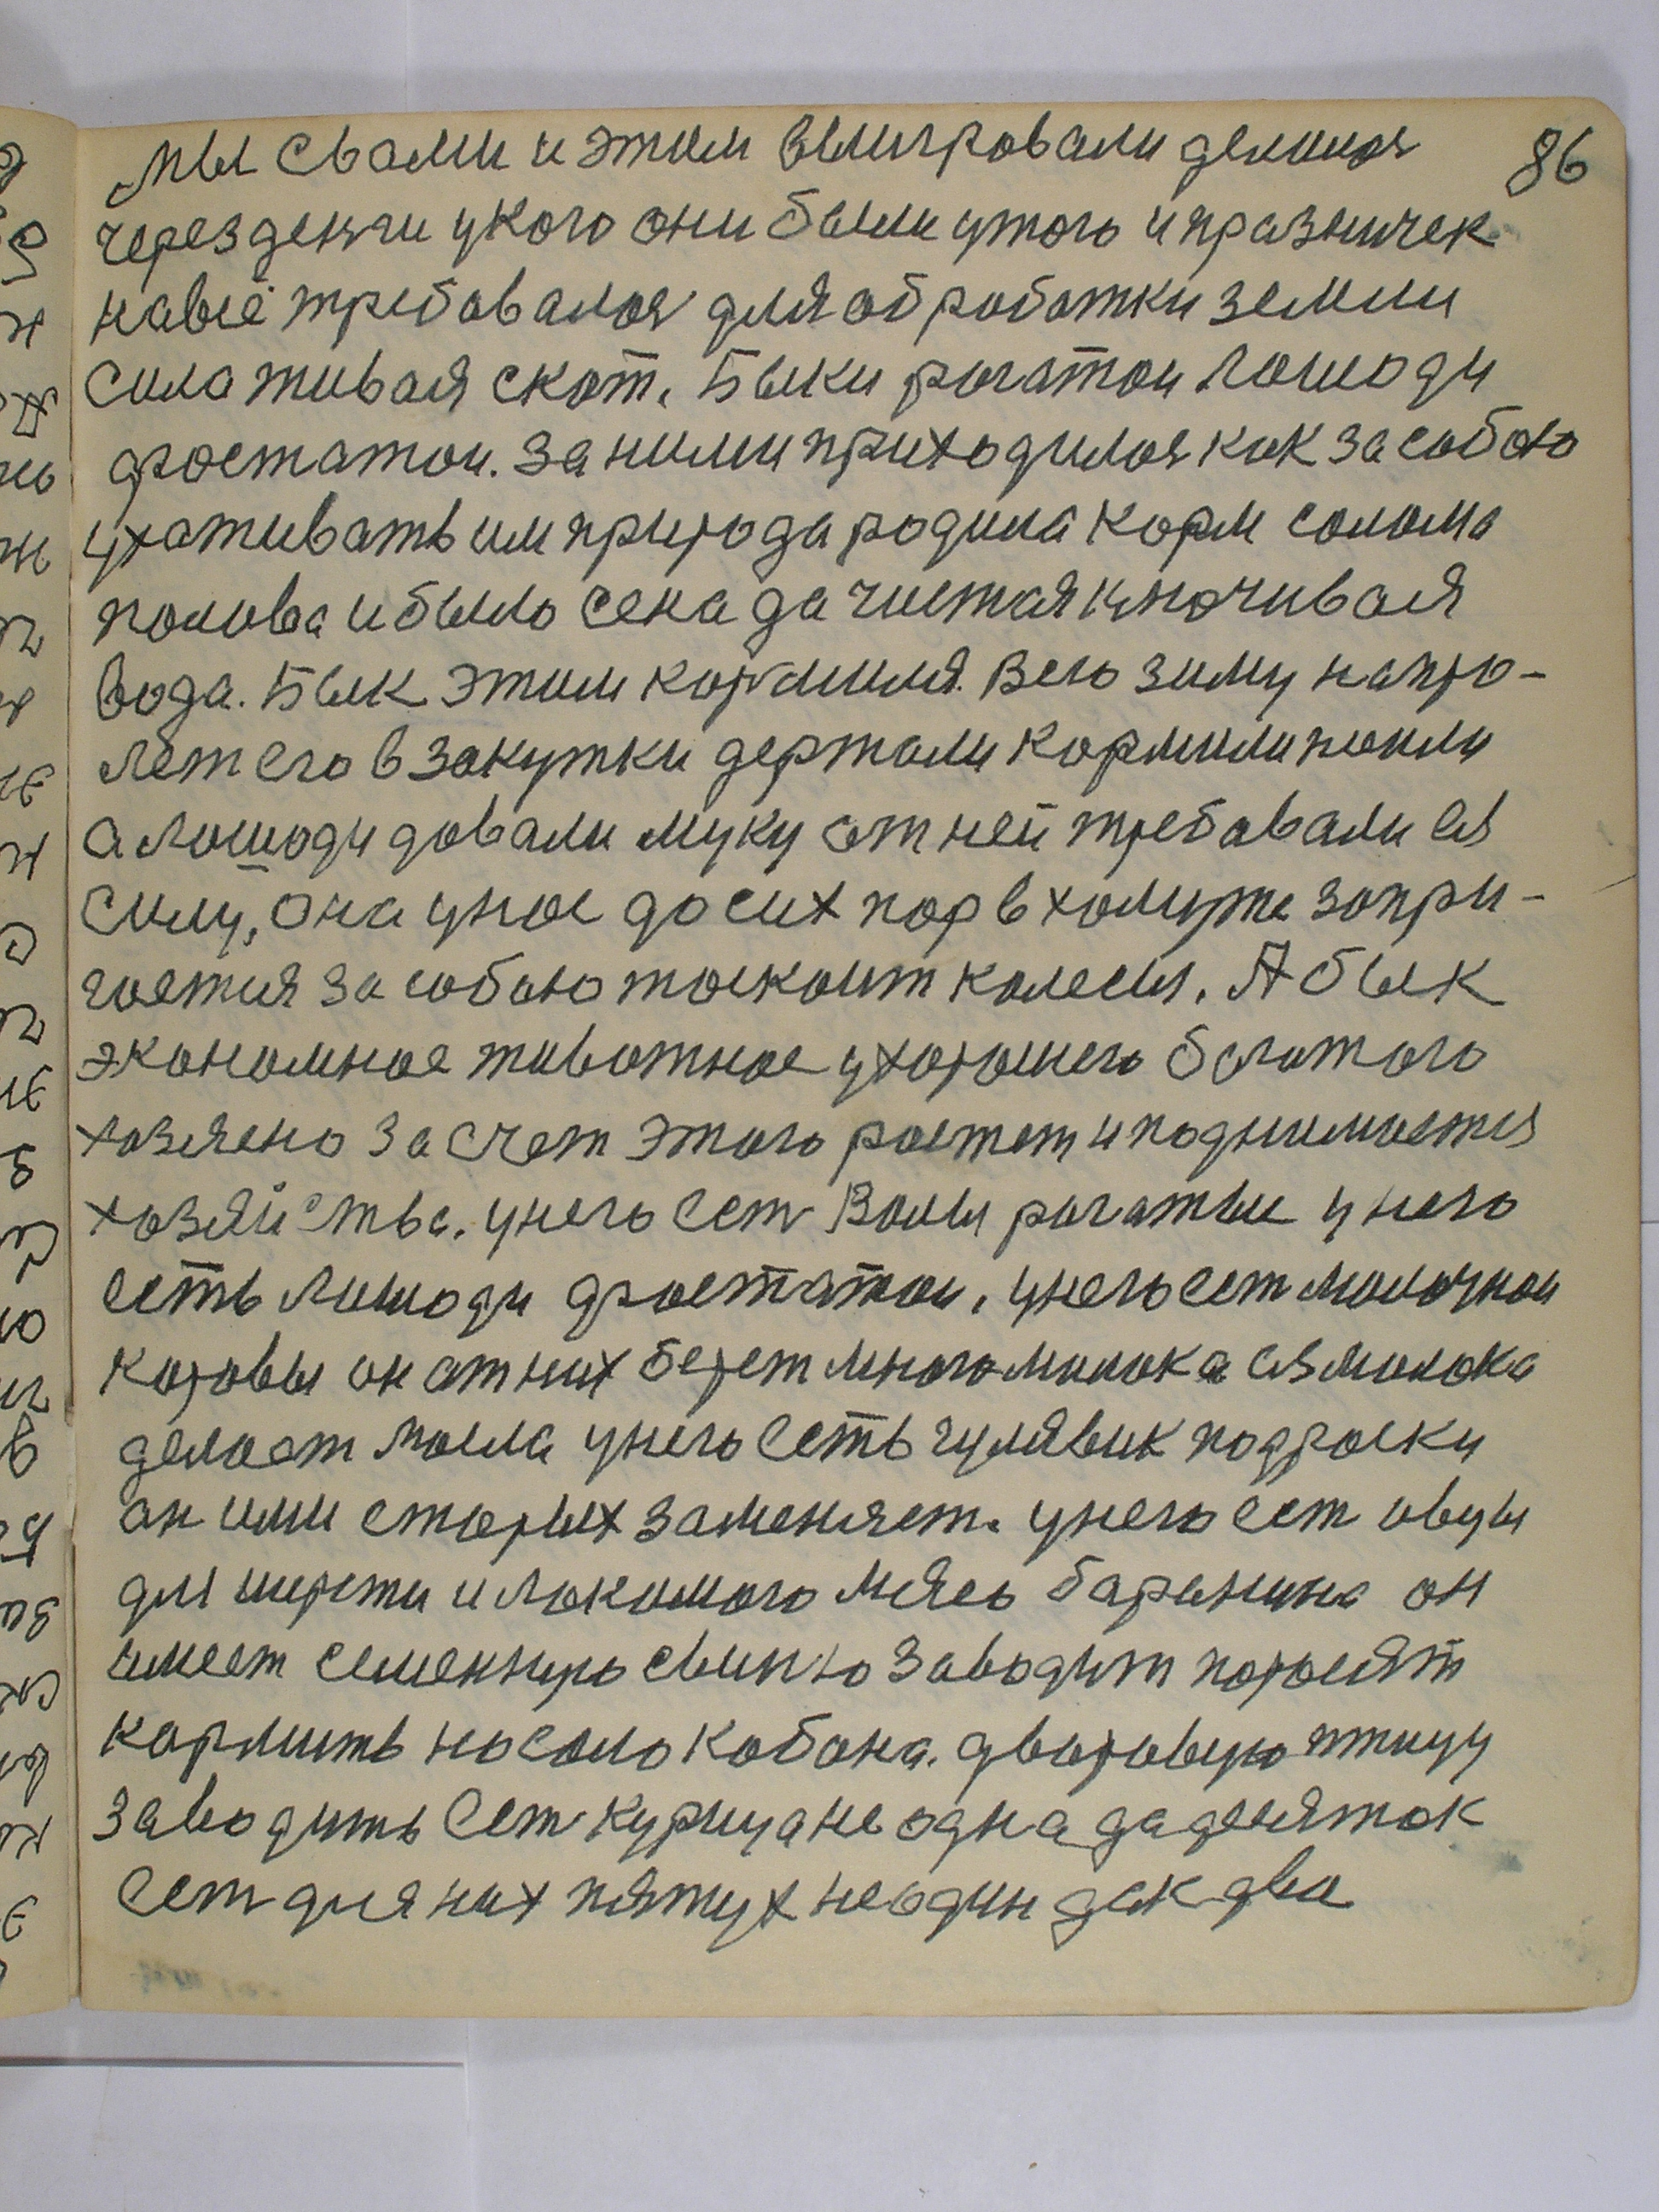 86
мы свами и этим выигровали делилося
через денги укого они были утого и празничек
навсё требовалося для обработки земли
сила живая скот. Быки рогатои лошоди
хвостатои. За ними приходилося как за собою
ухаживать им природа родила корм солома
полова и было сена да чистая ключивая
вода. Бык этим кормился. Всю зиму напро-
лёт его в закутки держали кормили поили
а лошоди довали муку от ней требовали ся
силу, она унас до сих пор в хомуте запри-
гается за собою тоскоит колесы. А бык
экономное животное ухорошего богатого
хозяено за счет этого ростет и поднимается
хозяйства. унего ест Волы рогатые у него
есть лошоди хвостатои. унего ест молочнои
коровы он от них берет много молока из молока
делоет масла унего есть гулявых подроски
он ими старых заменяет. унего ест овцы
для шерсти и локомого мясо баранина он
имеет семенную свинью заводит поросят
кормить на сало кабана. дворовую птицу
заводить Ест курица не одна да десяток
Ест для них пятух не один дак два